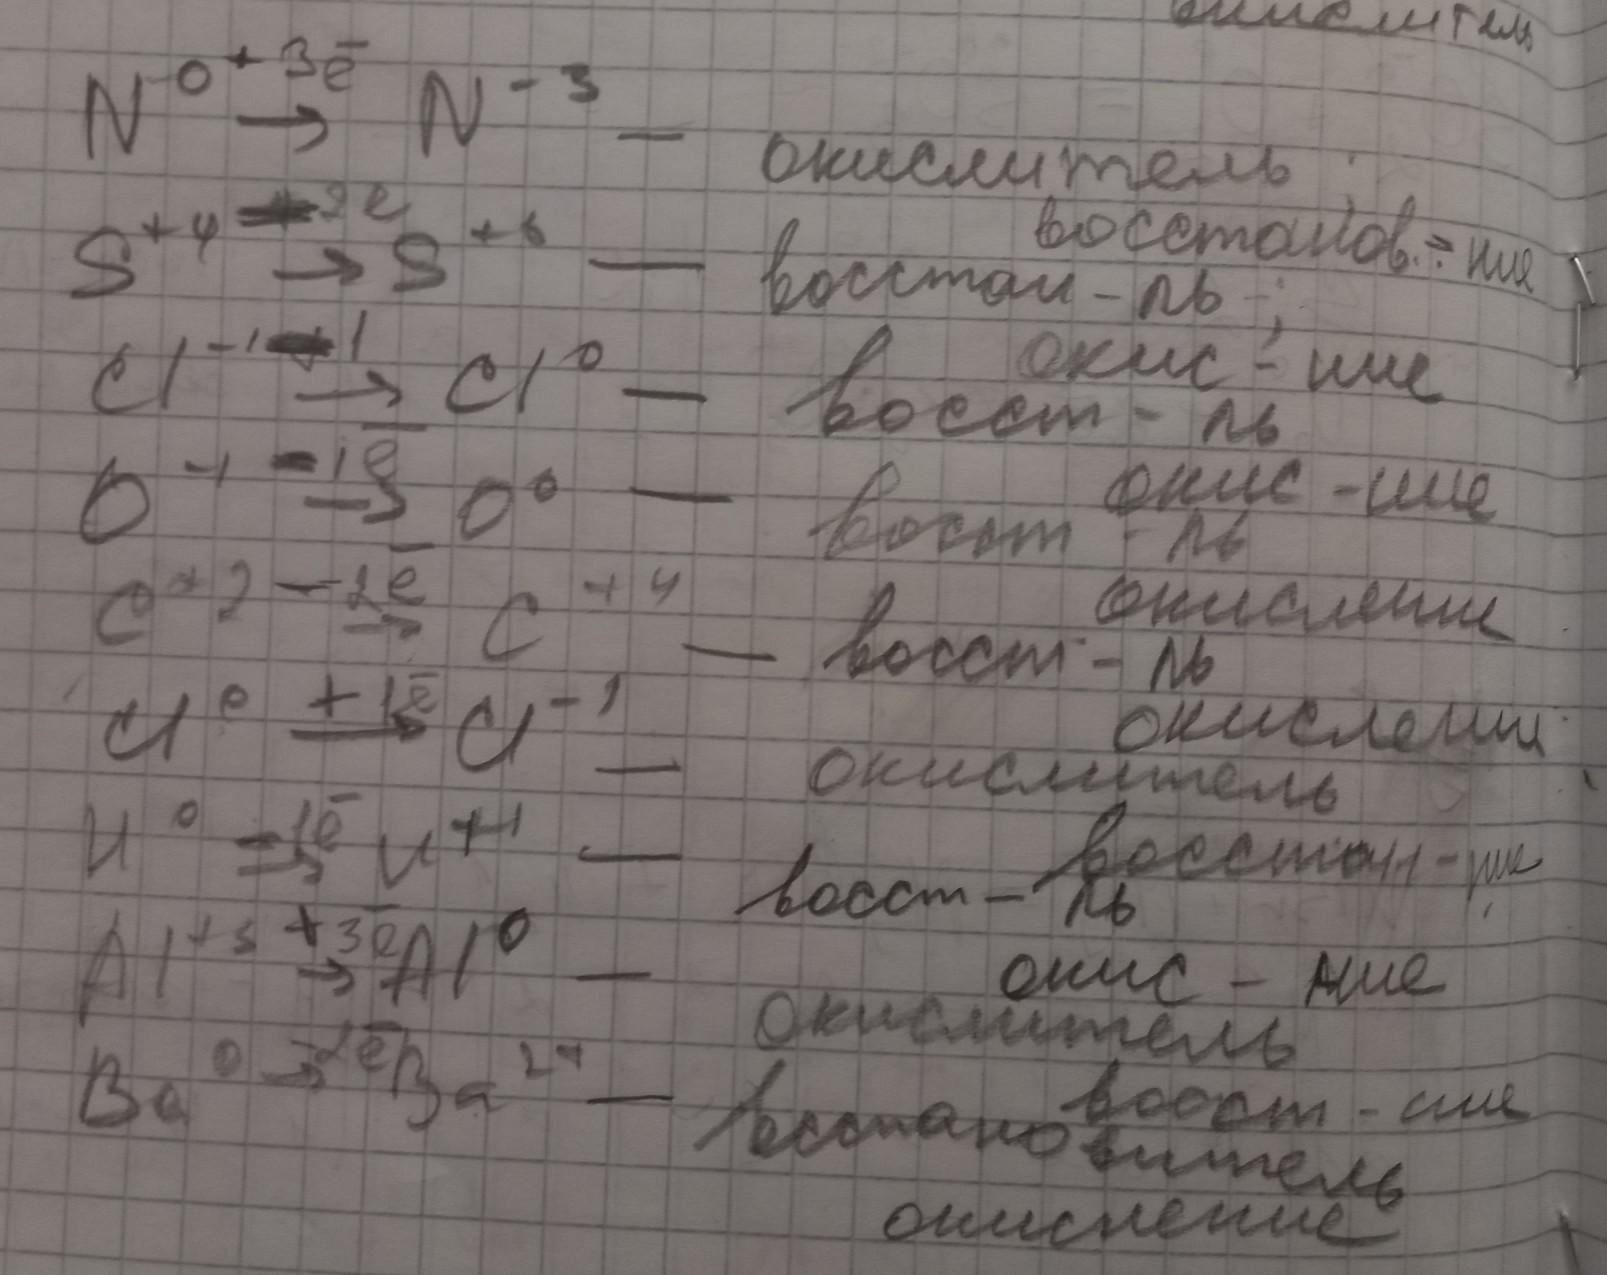 окислитель
N⁰ +3ē → N⁻³ — окислитель;
восстанов.-ние
S⁺⁴ -2e → S⁺⁶ — восстан-ль-;
окис-ние
Cl⁻¹ -1 → Cl⁰ — восст-ль
окис-ние
O⁻¹ -1ē → O⁰ — восст-ль
окисление
C⁺² -2ē → C⁺⁴ — восст-ль
окислении
Cl⁰ +1ē → Cl⁻¹ — окислитель
восстан-ние
И⁰ -1ē → И⁺¹ — восст-ль
окис-ние
Al⁺³ +3ē → Al⁰ — окислитель
восст-ние
Ba⁰ -2ē → Ba²⁺ — восстановитель
окисление